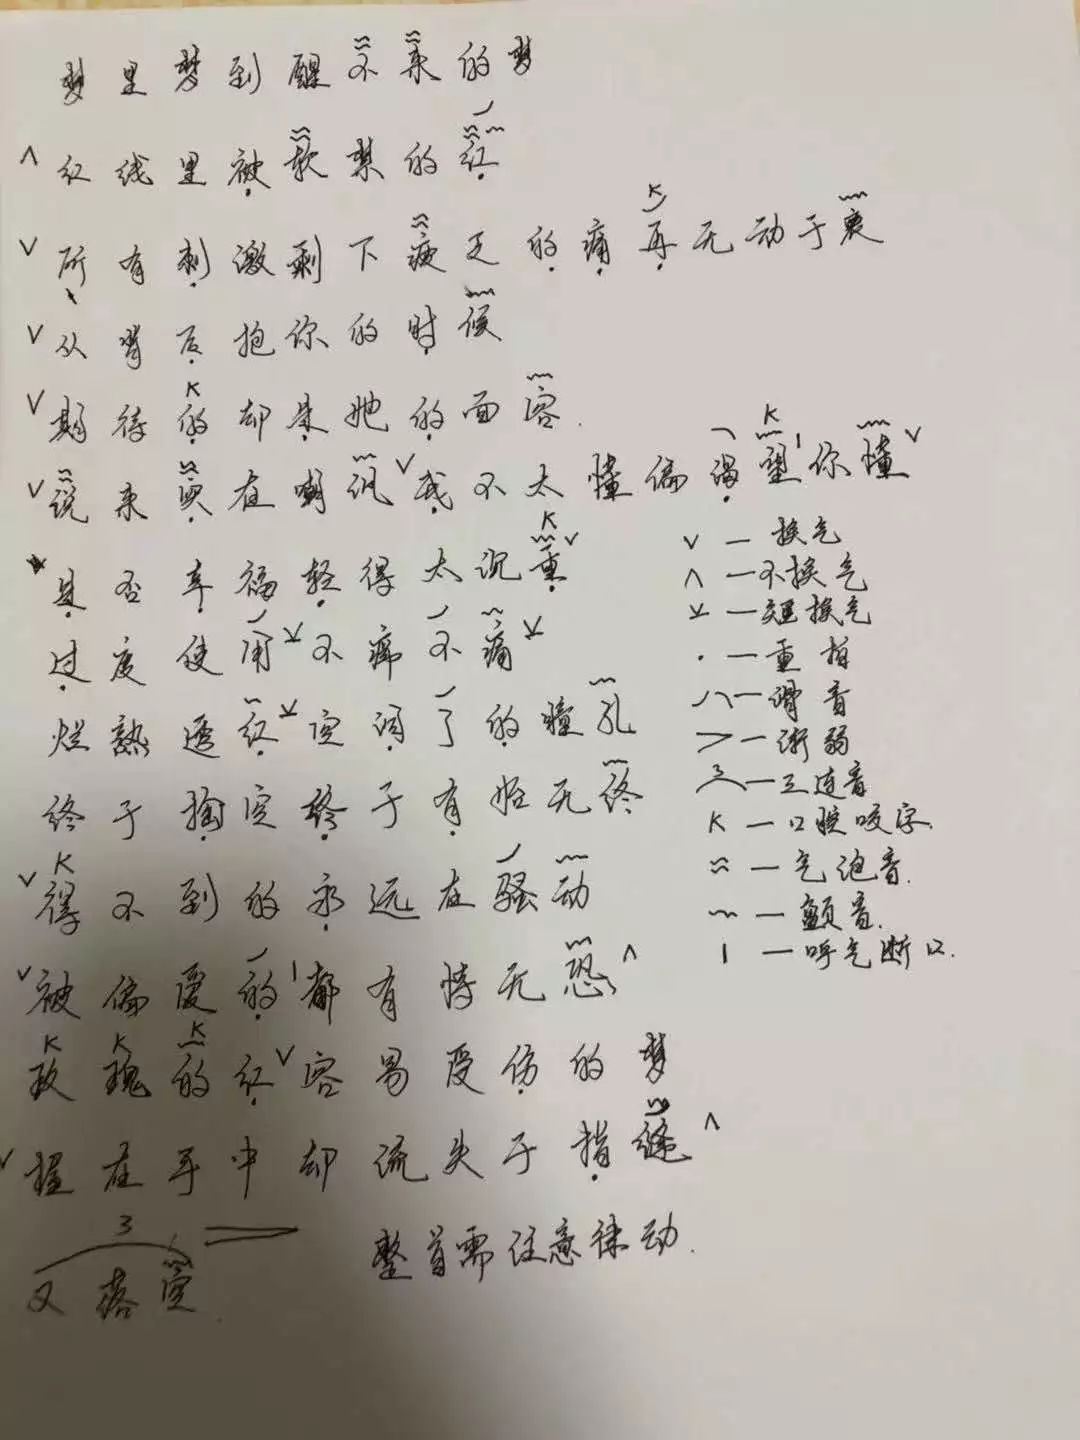 梦里梦到醒不来的梦
∧ 红线里被软禁的红
∨ 所有刺激剩下疲乏的痛再无动于衷
∨ 从背后抱你的时候
∨ 期待的却是她的面容.
∨ 说来实在嘲讽∨我不太懂偏渴望你懂∨
是否幸福轻得太沉重∨
过度使用不痒不痛
烂熟透红空洞了的瞳孔
终于掏空终于有始无终
∨ 得不到的永远在骚动
∨ 被偏爱的都有恃无恐∧
玫瑰的红∨容易受伤的梦
∨ 握在手中却流失于指缝∧
又落空
∨ — 换气
∧ — 不换气
— 短换气
· — 重拍
— 滑音
> — 渐弱
3 — 三连音
K — 口腔咬字.
≈ — 气泡音.
~ — 颤音.
| — 呼气断口.
整首需注意律动.